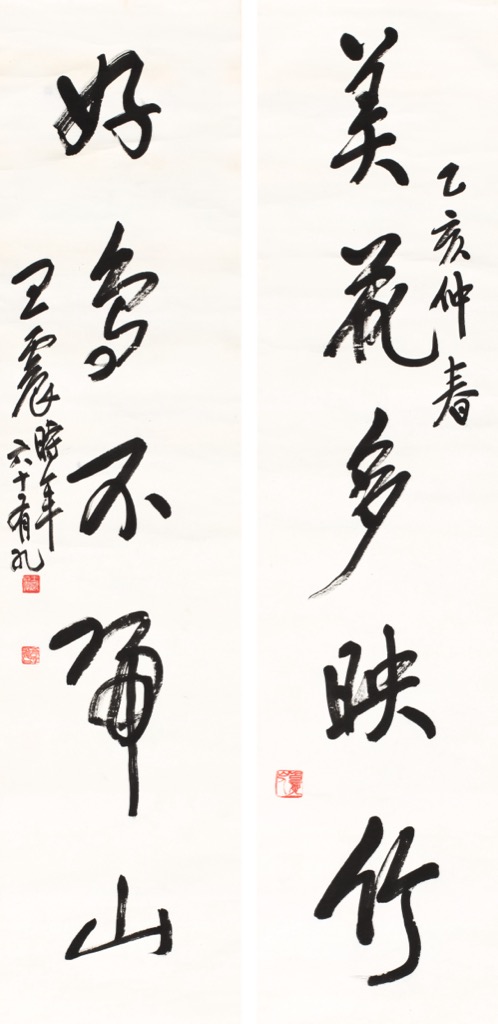 乙亥仲春
美花多映竹
好鳥不歸山
王震時年
六十有九